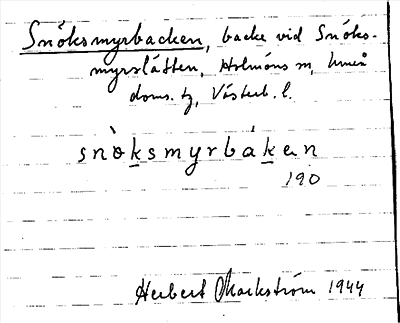 Snöksmyrbacken, backe vid Snöks-
myrslåtten, Holmöns sn, Umeå
doms. tg, Västerb. l.
snòksmyrbáken
190
Herbert Markström 1944